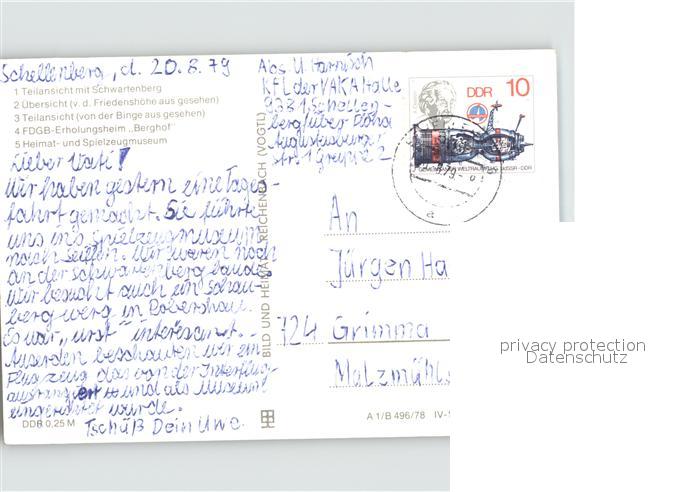 Schellenberg, d. 20.8.79
1 Teilansicht mit Schwartenberg
2 Übersicht (v. d. Friedenshöhe aus gesehen)
3 Teilansicht (von der Binge aus gesehen)
4 FDGB-Erholungsheim „Berghof"
5 Heimat- und Spielzeugmuseum
Lieber Vati!
Wir haben gestern eine Tages-
fahrt gemacht. Sie führte
uns ins Spielzeugmuseum
nach Seiffen. Wir waren noch
an der Schwartenbergbaude.
Wir besucht auch ein Schau-
bergwerg in Pobershau.
Es war „urst" interesant.
Auserden beschauten wir ein
Flugzeug das von der Interflug
und als Museum
eingerichtet wurde.
Tschüß Dein Uwe.
DDR 0,25 M
BILD UND HEIMAT REICHENBACH (VOGTL)
Abs. U.
KFL der VAKA Halle
9331 Schellen-
berg über Flöha
Augustusburger
Str. 1 Gruppe 2
DDR 10
GEMEINSAMER WELTRAUMFLUG UdSSR-DDR
An
Jürgen Ha
724 Grimma
Malzmühle
A 1/B 496/78 IV-
privacy protection
Datenschutz